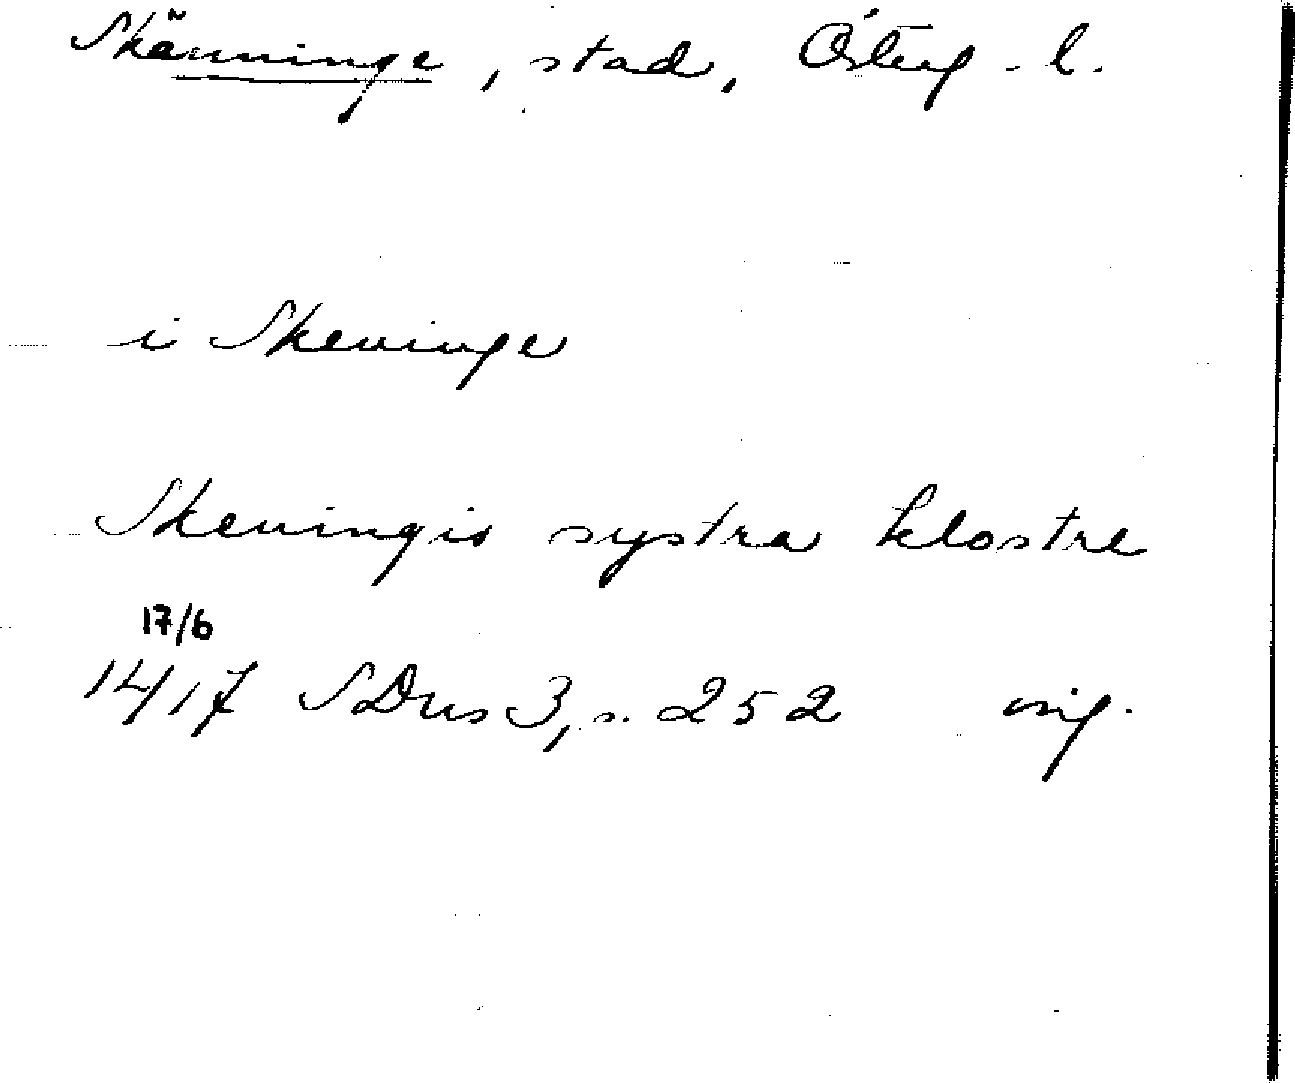 Skänninge, stad, Österg. l.
i Skeninge
Skeningis systra klostre
17/6
1417 SDns 3, s. 252 orig.